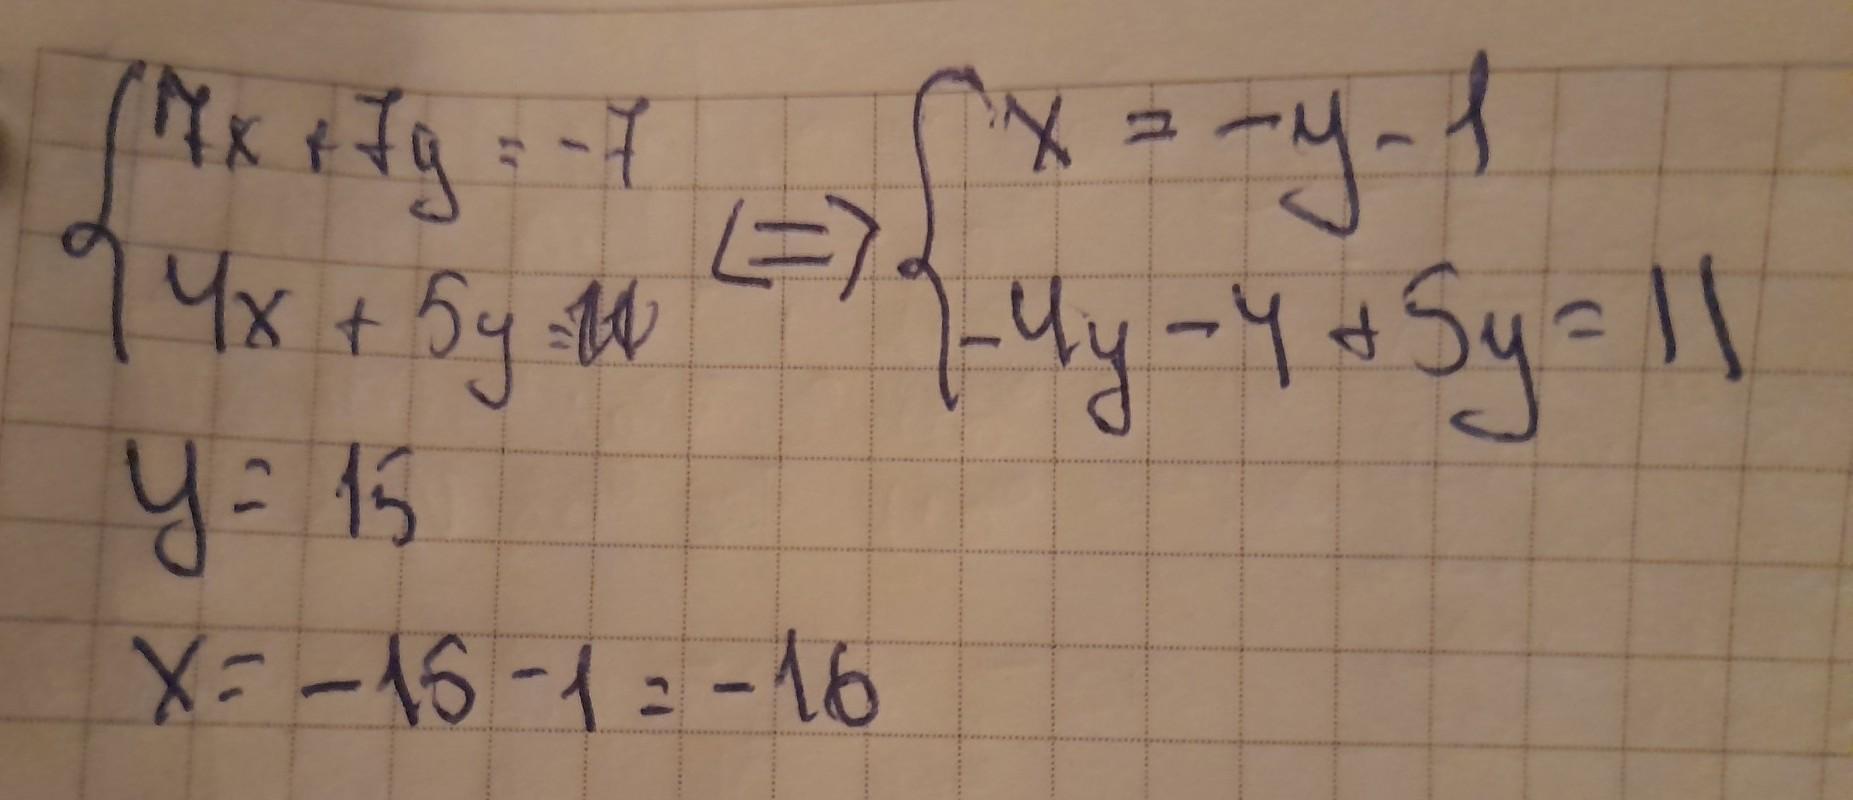 7x + 7y = -7 <=> x = -y - 1
4x + 5y = 11 -4y - 4 + 5y = 11
y = 15
x = -15 - 1 = -16